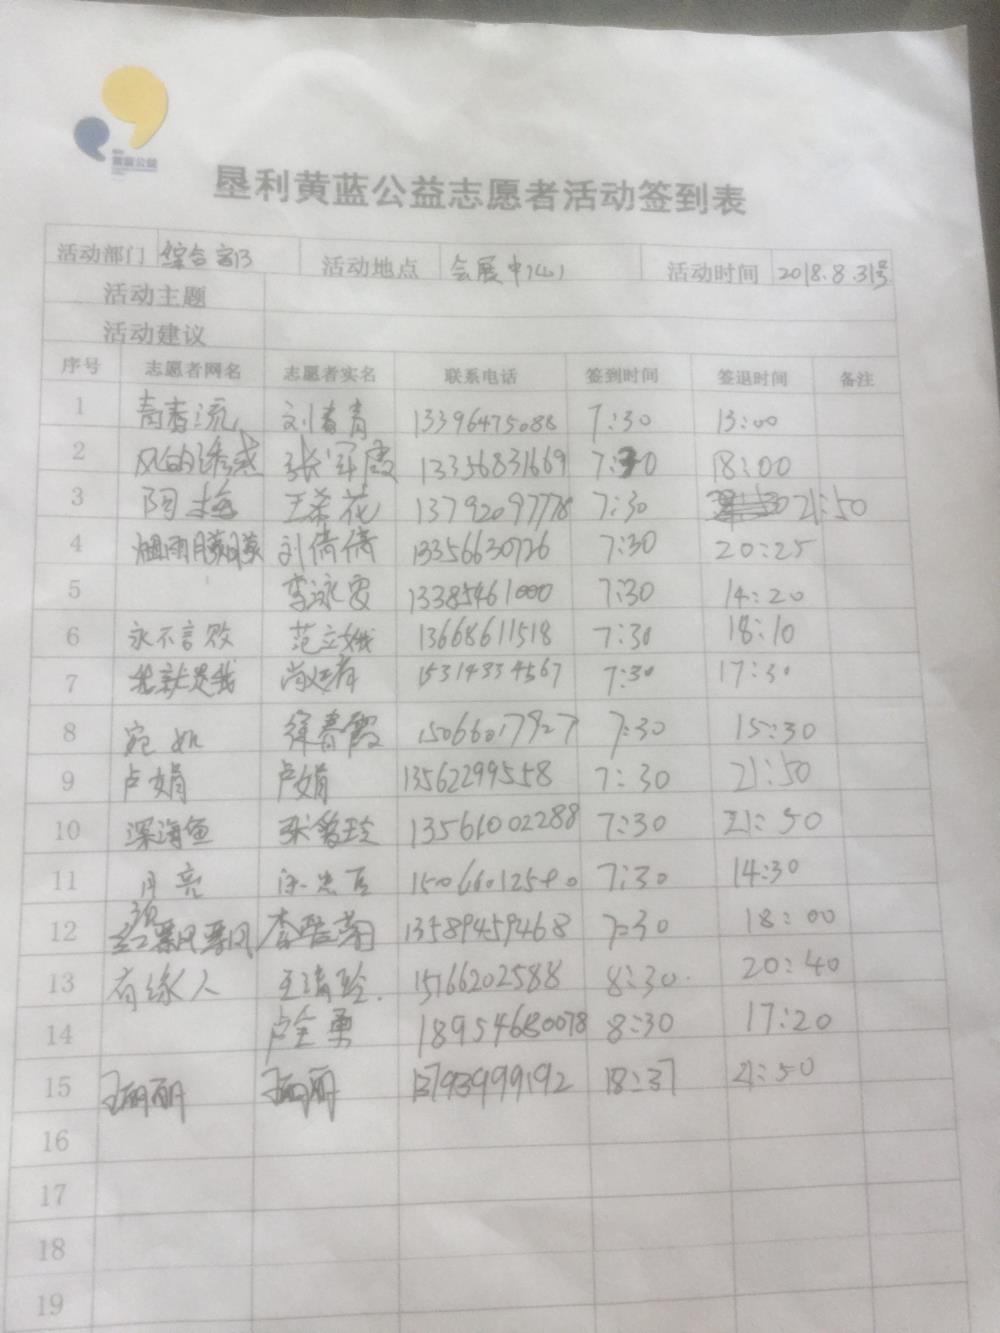 黄蓝公益
垦利黄蓝公益志愿者活动签到表
活动部门 综合部 活动地点 会展中心 活动时间 2018.8.31号
活动主题
活动建议
序号 志愿者网名 志愿者实名 联系电话 签到时间 签退时间 备注
1 刘春青 13396475088 7:30 13:00
2 风的诱惑 张军霞 13356831669 7:30 18:00
3 阿梅 王希花 13792097778 7:30 21:50
4 烟雨朦朦 刘倩倩 13356630726 7:30 20:25
5 李泳霖 13385461000 7:30 14:20
6 永不言败 范立娥 13668611518 7:30 18:10
7 我就是我 15314334567 7:30 17:30
8 宛如 徐春霞 15066017927 7:30 15:30
9 卢娟 卢娟 13562299558 7:30 21:50
10 深海鱼 张爱玲 13561002288 7:30 21:50
11 月亮 7:30 14:30
12 13589459468 7:30 18:00
13 有缘人 王清玲 15166202588 8:30 20:40
14 卢全勇 18954680078 8:30 17:20
15 王丽丽 王丽丽 13793999192 18:37 21:50
16
17
18
19